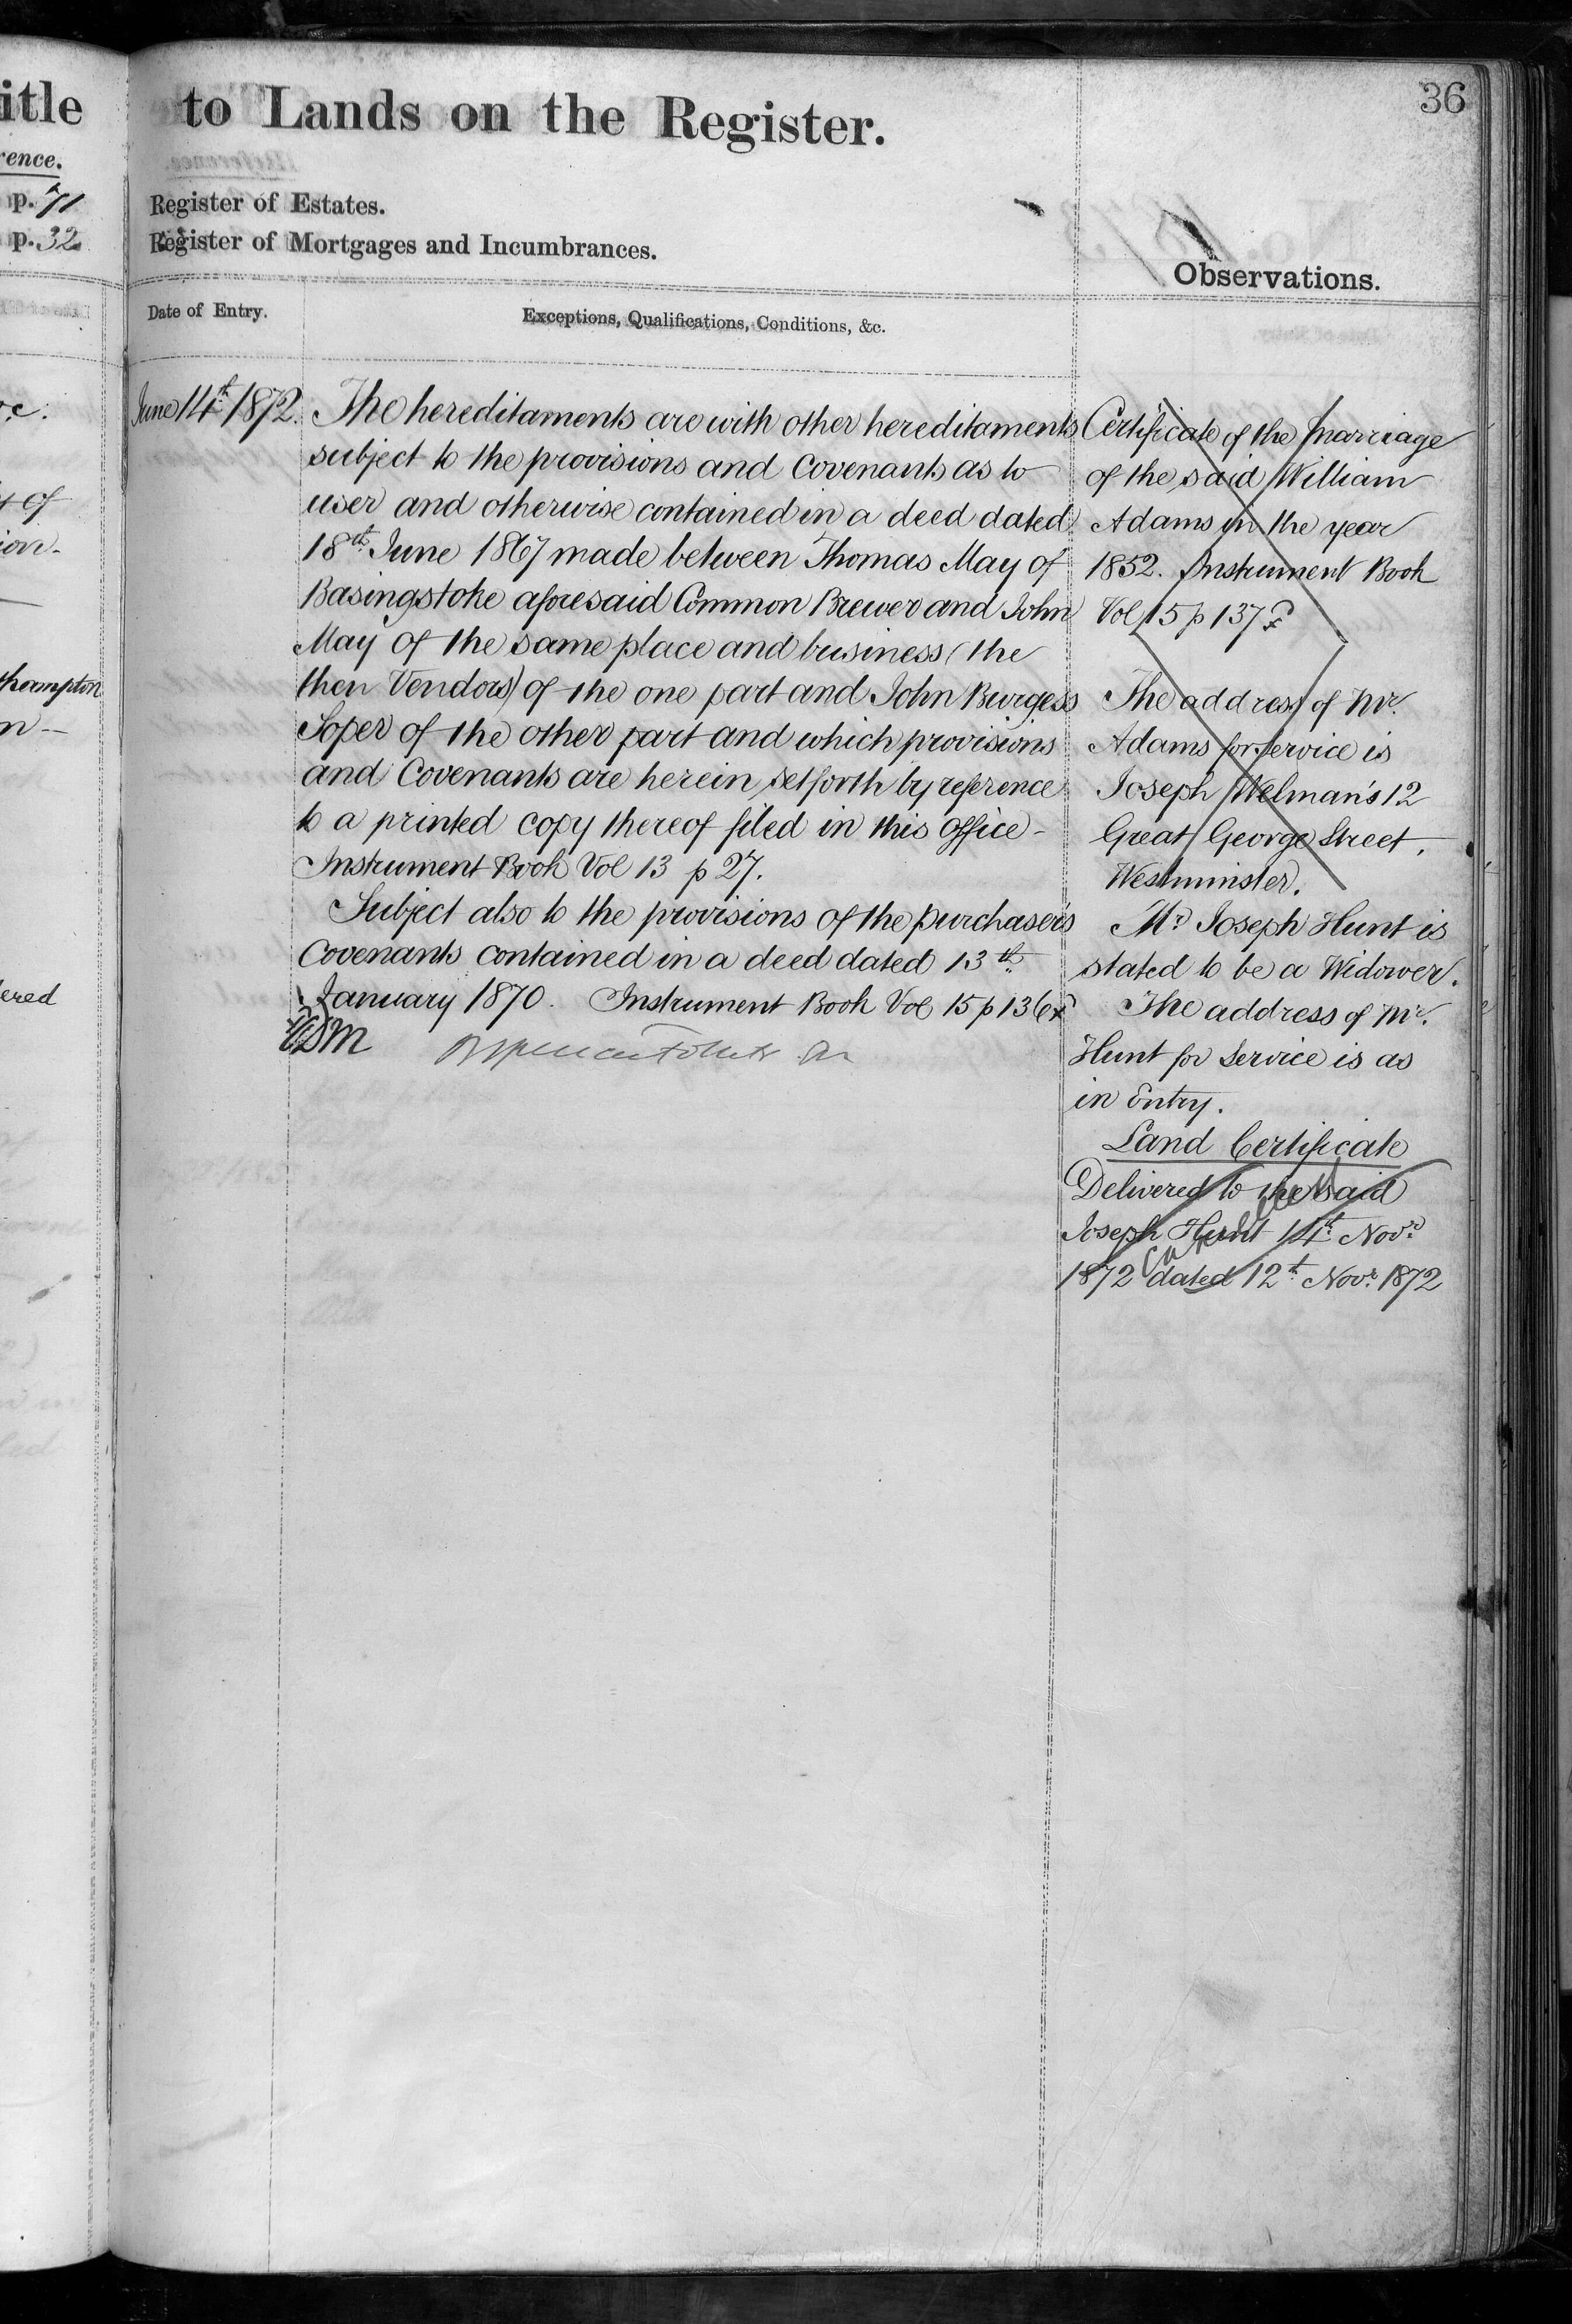 itle
rence.
p. 71
p. 32
of
ion.
thampton
ered
36
to Lands on the Register.
Register of Estates.
Register of Mortgages and Incumbrances.
Observations.
Date of Entry.
Exceptions, Qualifications, Conditions, &c.
June 14th 1872.
The hereditaments are with other hereditaments
subject to the provisions and Covenants as to
user and otherwise contained in a deed dated
18th June 1867 made between Thomas May of
Basingstoke aforesaid Common Brewer and John
May of the same place and business (the
then Vendors) of the one part and John Burgess
Soper of the other part and which provisions
and Covenants are herein set forth by reference
to a printed copy thereof filed in this Office -
Instrument Book Vol 13 p 27.
Subject also to the provisions of the purchaser's
Covenants contained in a deed dated 13th
January 1870. Instrument Book Vol 15 p 136
Certificate of the Marriage
of the said William
Adams in the year
1852. Instrument Book
Vol 15 p 137
The address of Mr.
Adams for Service is
Joseph Welman's 12
Great George Street.
Westminster.
Mr Joseph Hunt is
stated to be a Widower.
The address of Mr.
Hunt for Service is as
in Entry.
Land Certificate
Delivered to the said
Joseph Hunt 14th Novr
1872 dated 12th Novr 1872
Cancelled